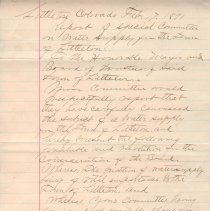 Littleton Colorado Feb 7, 1891
Report of Special Committee
on Water Supply for the Town
of Littleton.
To the Honorable Mayor and
Board of Trustees of Said
Town of Littleton
Your Committee would
respectfully report that
they have carefully considered
the subject of a water supply
for the Town of Littleton, and
the following
and resolution to the
consideration of the Board.
Whereas the question of water supply
being of vital importance to the
Town of Littleton, and
Whereas Your Committee having